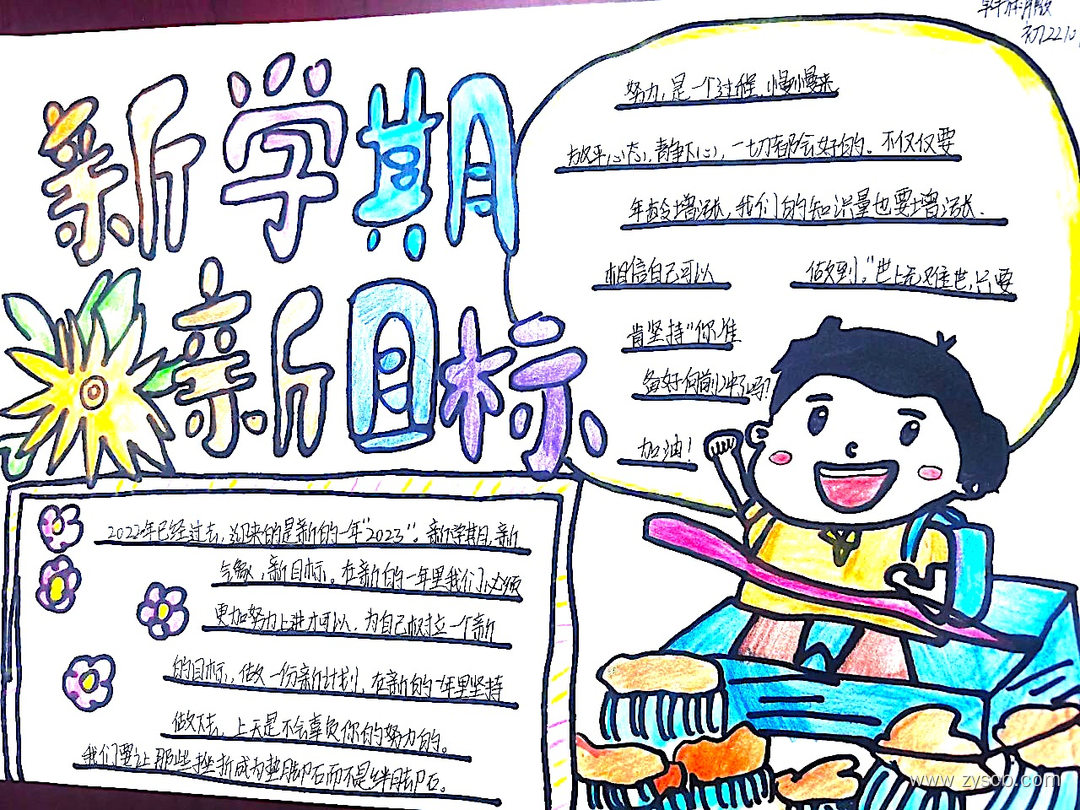 新学期
新目标
初2210
努力,是一个过程,慢慢来
放平心态,静下心,一切都会好的。不仅仅要
年龄增涨,我们的知识量也要增涨.
相信自己可以 做到,"世上无难世,只要
肯坚持"你准
备好向前冲了吗?
加油!
2022年已经过去,迎来的是新的一年"2023",新学期,新
气象,新目标。在新的一年里我们必须
更加努力上进才可以,为自己树立一个新
的目标,做一份新计划,在新的一年里坚持
做下去,上天是不会辜负你的努力的。
我们要让那些挫折成为垫脚石而不是绊脚石。
www.zysco.com